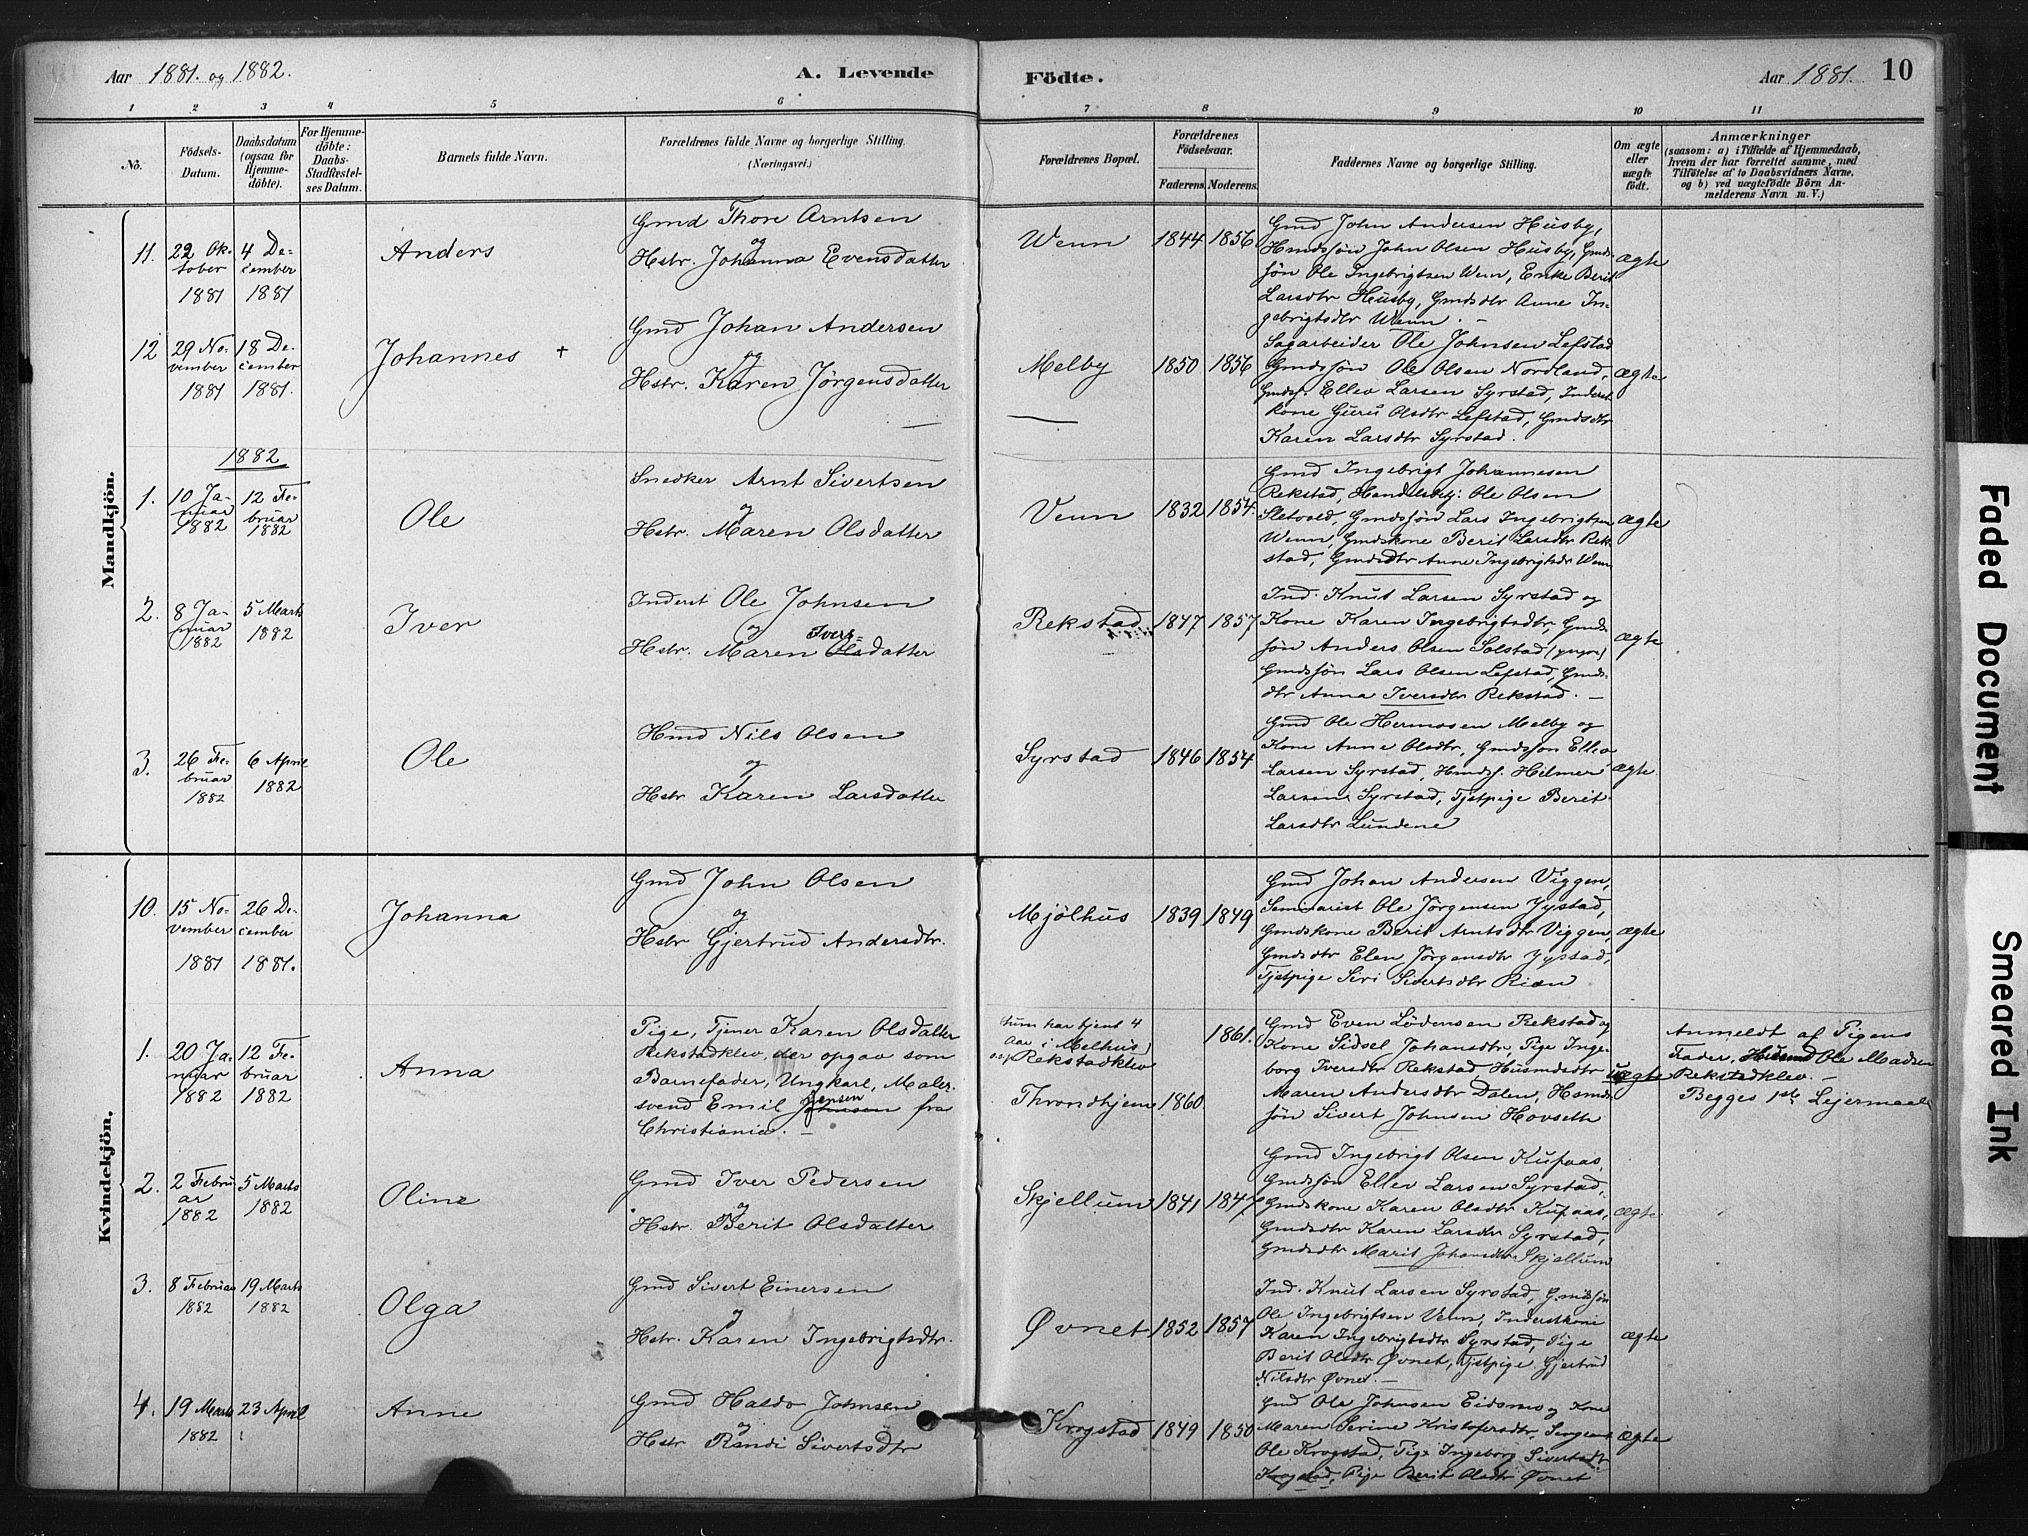 Aar 1881. og 1882.
A. Levende
Födte.
Aar 1881.
10
1 2 3 4 5 6 7 8 9 10 11
No.
Födsels-
Datum.
Daabsdatum
(ogsaa for
Hjemme-
döbte).
For Hjemme-
döbte:
Daabs-
Stadfæstel-
ses Datum.
Barnets fulde Navn.
Forældrenes fulde Navne og borgerlige Stilling.
(Næringsvei.)
Forældrenes Bopæl.
Forældrenes
Födselsaar.
Faderens. Moderens.
Faddernes Navne og borgerlige Stilling.
Om ægte
eller
uægte
födt.
Anmærkninger
(saasom: a) i Tilfælde af Hjemmedaab,
hvem der har forrettet samme, med
Tilföielse af to Daabsvidners Navne,
og b) ved uægtefödte Börn An-
melderens Navn m. V.)
Mandkjön.
11.
22 Ok-
tober
1881
4 De-
cember
1881
Anders
Gmd Thore Arntsen
og
Hstr. Johanna Evensdatter
Wenn
1844 1856
Gmd John Andersen Husby,
Hmdssön John Olsen Husby, Gmds-
sön Ole Ingebrigtsen Wenn, Enke Berit
Larsdtr Husby, Gmdsdtr Anne In-
gebrigtsdtr Wenn. —
ægte
12
29 No-
vember
1881
18 De-
cember
1881.
Johannes +
Gmd Johan Andersen
og
Hstr. Karen Jørgensdatter
Melby
1850 1856
Sagarbeider Ole Johnsen Lefstad
Gmdssön Ole Olsen Nordland,
Gmdss. Ellev Larsen Syrstad, Inderst-
kone Guru Olsdtr Lefstad, Gmdsdtr
Karen Larsdtr Syrstad.
ægte
1882
1.
10 Ja-
nuar
1882
12 Fe-
bruar
1882
Ole
Snedker Arnt Sivertsen
og
Hstr. Maren Olsdatter
Venn
1832 1854.
Gmd Ingebrigt Johannesen
Rekstad, Handelsbetj: Ole Olsen
Sletvold, Gmdssön Lars Ingebrigtsen
Wenn, Gmdskone Berit Larsdtr Rek-
stad, Gmdsdtr Anne Ingebrigtsdtr Wenn
ægte
2.
8 Ja-
nuar
1882
5 Marts
1882
Iver
Inderst Ole Johnsen
og Ivers-
Hstr. Maren Olsdatter
Rekstad
1847 1857
Ind. Knut Larsen Syrstad og
Kone Karen Ingebrigtsdtr, Gmds-
sön Anders Olsen Solstad (yngre)
Gmdssön Lars Olsen Lefstad, Gmds-
dtr Anna Iversdtr Rekstad. —
ægte
3.
26 Fe-
bruar
1882
6 April
1882
Ole
Hmd Nils Olsen
og
Hstr Karen Larsdatter
Syrstad
1846 1854
Gmd Ole Hermosen Melby og
Kone Anne Olsdtr, Gmdssön Ellev
Larsen Syrstad, Hmdss. Helmer
Larsen Syrstad, Tjstpige Berit
Larsdtr Lundene
ægte
Kvindekjön.
10.
15 No-
vember
1881
26 De-
cember
1881.
Johanna
Gmd John Olsen
og
Hstr Gjertrud Andersdtr.
Mjölhus
1839 1849
Gmd Johan Andersen Viggen,
Seminarist Ole Jörgensen Jystad,
Gmdskone Berit Arntsdtr Viggen,
Gmdsdtr Elen Jörgensdtr Jystad,
Tjstpige Siri Sivertsdtr Rian
ægte
1.
20 Ja-
nuar
1882
12 Fe-
bruar
1882
Anna
Pige, Tjener Karen Olsdatter
Rekstadklev, der opgav som
Barnefader, Ungkarl, Maler-
svend Emil Johnsen Jensen fra
Christiania. —
(hun har tjent 4
Aar i Melhus)
Rekstadklev
Throndhjem
1860
1861.
Gmd Even Lödensen Rekstad og
Kone Sidsel Johansdtr, Pige Inge-
borg Iversdtr Rekstad Husmdsdtr
Maren Andersdtr Dalen, Hsmds-
sön Sivert Johnsen Hovseth
uægte
Anmeldt af Pigens
Fader, Husmd Ole Madsen
Rekstadklev. —
Begges 1ste Lejermaal
2.
2 Febru-
ar
1882
5 Marts
1882
Oline
Gmd Iver Pedersen
og
Hstr Berit Olsdatter
Skjellum
1841 1847
Gmd Ingebrigt Olsen Kufaas,
Gmdssön Ellev Larsen Syrstad,
Gmdskone Karen Olsdtr Kufaas,
Gmdsdtr Karen Larsdtr Syrstad,
Gmdsdtr Marit Johansdtr Skjellum
ægte
3.
8 Februar
1882
19 Marts
1882
Olga
Gmd Sivert Einersen
og
Hstr. Karen Ingebrigtsdtr.
Øvnet
1852 1857
Ind. Knut Larsen Syrstad, Gmdssön
Ole Ingebrigtsen Venn, Inderstkone
Karen Ingebrigtsdtr Syrstad, Pige
Berit Olsdtr Øvnet, Tjstpige Gjertrud
Nilsdtr Øvnet. —
ægte
4.
19 Marts
1882
23 April
Anne
Gmd Haldo Johnsen
og
Hstr Randi Sivertsdtr
Krogstad
1849 1850
Gmd Ole Johnsen Eidsmo og Kone
Maren Serine Kristofersdtr, Sergeant
Ole Krogstad, Pige Ingeborg Sivertsdtr
Krogstad, Pige Berit Olsdtr Øvnet
ægte
Faded Document
Smeared Ink